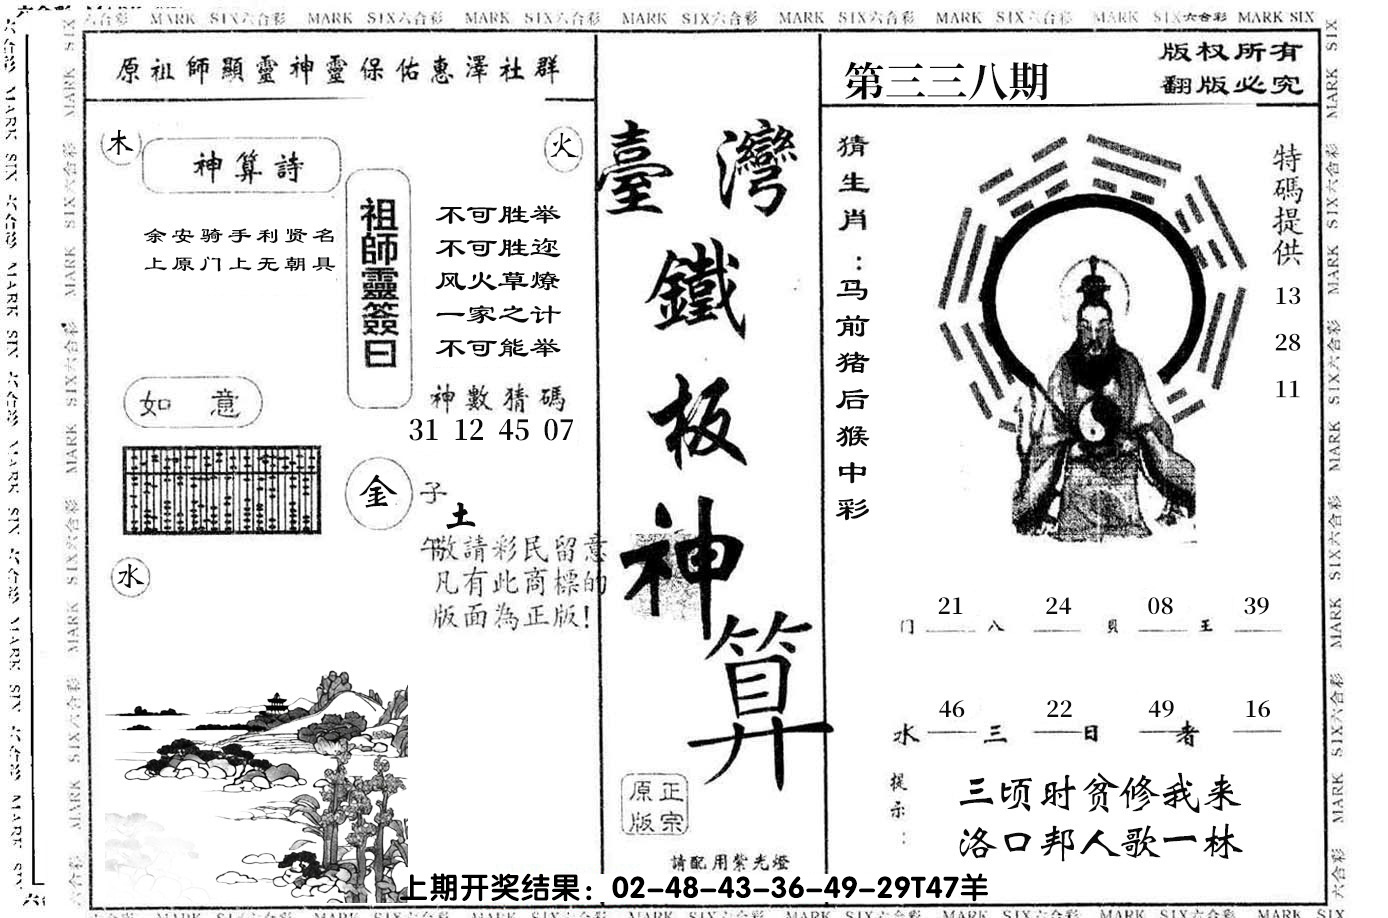 MARK SIX六合彩 MARK SIX六合彩 MARK SIX六合彩 MARK SIX六合彩 MARK SIX六合彩 MARK SIX六合彩 MARK SIX六合彩 MARK SIX
原祖師顯靈神靈保佑惠澤社群
木
神算詩
火
余安骑手利贤名
上原门上无朝具
祖師靈簽曰
不可胜举
不可胜迩
风火草燎
一家之计
不可能举
如 意
神數猜碼
31 12 45 07
金
子
土
午
敬請彩民留意
凡有此商標的
版面為正版!
水
臺灣
鐵
板
神
算
正宗
原版
請配用紫光燈
第三三八期
版权所有
翻版必究
猜生肖:马前猪后猴中彩
特碼提供
13
28
11
门 21 八 24 貝 08 王 39
水 46 三 22 日 49 者 16
提示:
三顷时贫修我来
洛口邦人歌一林
上期开奖结果：02-48-43-36-49-29T47羊